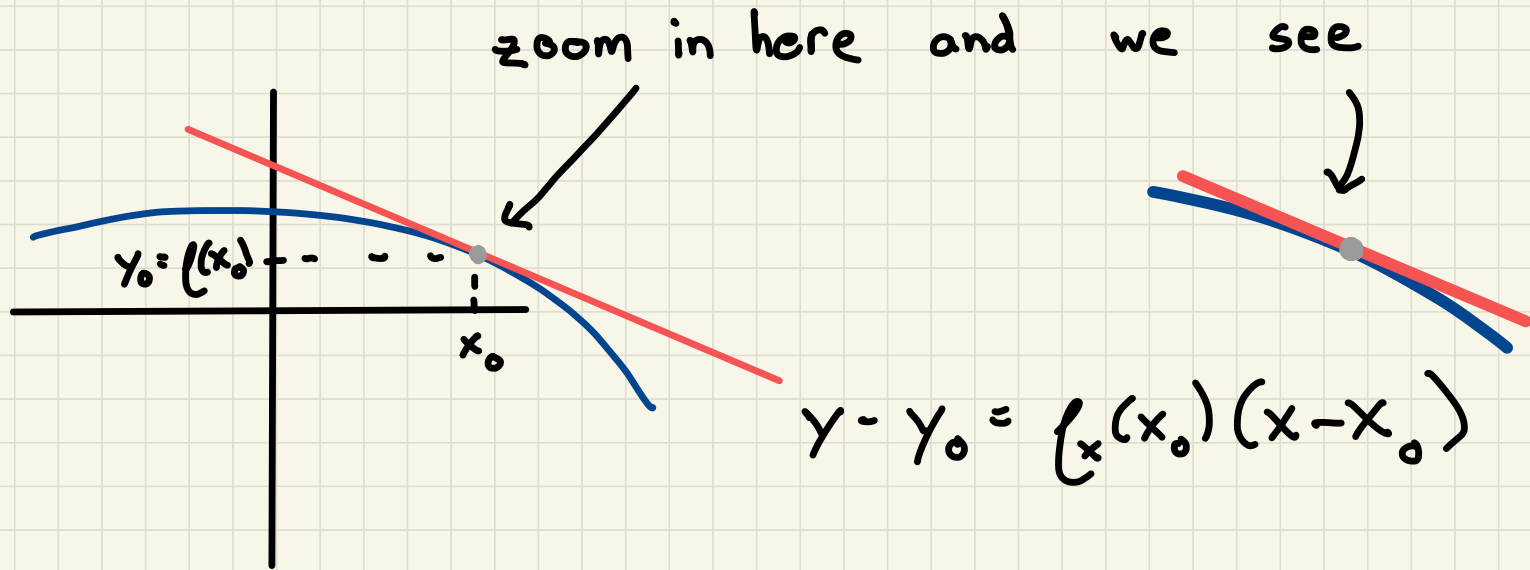 zoom in here and we see
y₀ = f(x₀)
x₀
y - y₀ = fₓ(x₀)(x - x₀)